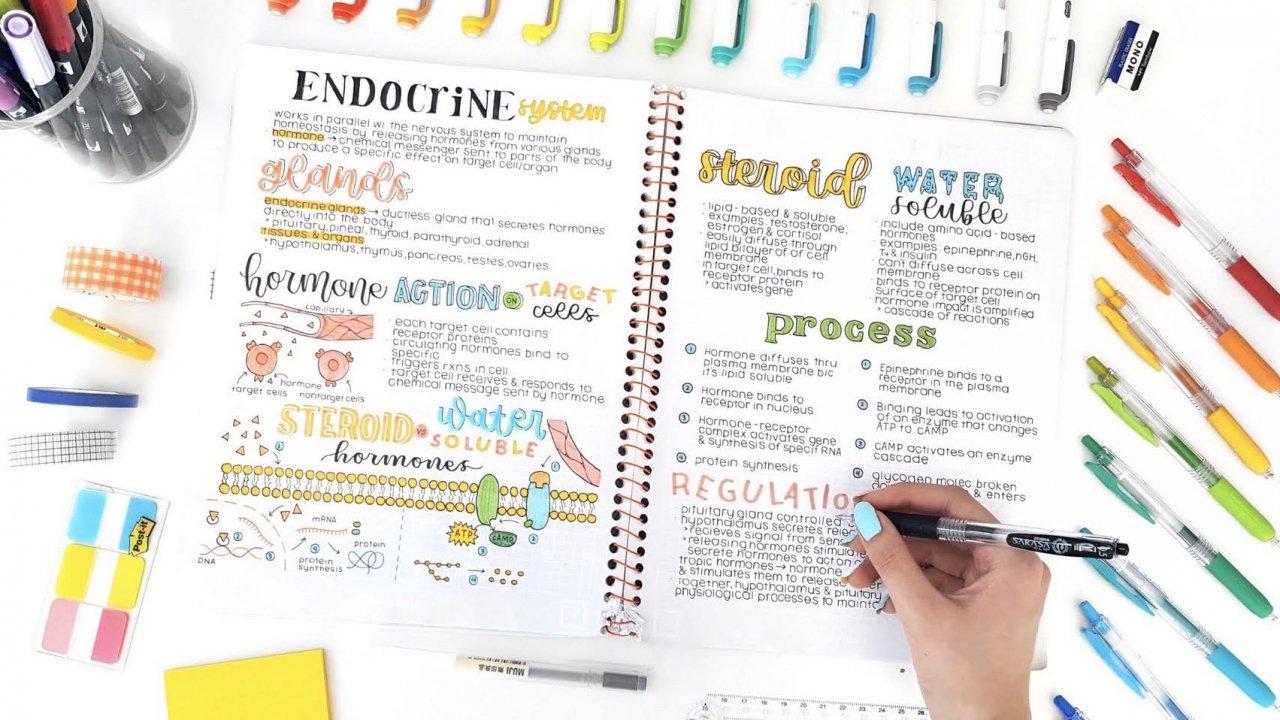 ENDOCRiNE system
· works in parallel w/ the nervous system to maintain
homeostasis by releasing hormones from various glands
· hormone → chemical messenger sent to parts of the body
to produce a specific effect on target cell/organ
glands
endocrine glands → ductless gland that secretes hormones
directly into the body
> pituitary, pineal, thyroid, parathyroid, adrenal
tissues & organs
> hypothalamus, thymus, pancreas, testes, ovaries
hormone ACTION ON TARGET
cells
capillary
target cells
hormone
nontarget cells
· each target cell contains
receptor proteins
· circulating hormones bind to
specific
· triggers rxns in cell
· target cell receives & responds to
chemical message sent by hormone
STEROID vs water
SOLUBLE
hormones
1
1
2
3
DNA
mRNA
4
protein
synthesis
protein
ATP
2
3
cAMP
4
steroid
· lipid - based & soluble
· examples: testosterone,
estrogen & cortisol
· easily diffuse through
lipid bilayer of cell
membrane
· in target cell, binds to
receptor protein
> activates gene
WATER
soluble
· include amino acid - based
hormones
· examples: epinephrine, hGH,
T4 & insulin
· can't diffuse across cell
membrane
· binds to receptor protein on
surface of target cell
· hormone impact is amplified
> cascade of reactions
process
1 Hormone diffuses thru
plasma membrane b/c
it's lipid soluble
2 Hormone binds to
receptor in nucleus
3 Hormone-receptor
complex activates gene
& synthesis of specif RNA
4 protein synthesis
1 Epinephrine binds to a
receptor in the plasma
membrane
2 Binding leads to activation
of an enzyme that changes
ATP to cAMP
3 cAMP activates an enzyme
cascade
4 glycogen molec. broken
& enters
REGULATIO
· pituitary gland controlled
· hypothalamus secretes
recieves signal from
> releasing hormones
secrete hormones to action
· tropic hormones → hormone
& stimulates them to release
· Together, hypothalamus & pituitary
physiological processes to
MONO
PLASTIC ERASER
Post-it
MUJI 無印良品
ZEBRA
SARASA
0.5